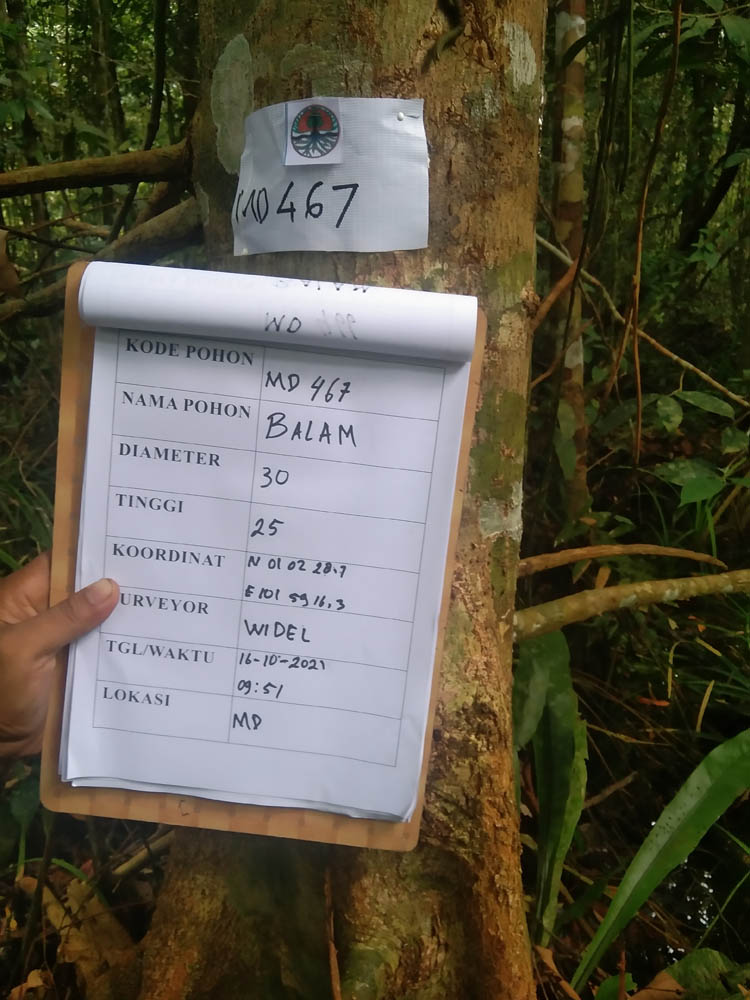 MD 467
KODE POHON
MD 467
NAMA POHON
BALAM
DIAMETER
30
TINGGI
25
KOORDINAT
N 01 02 28.7
E 101 59 16.3
URVEYOR
WIDEL
TGL/WAKTU
16-10-2021
09:51
LOKASI
MD